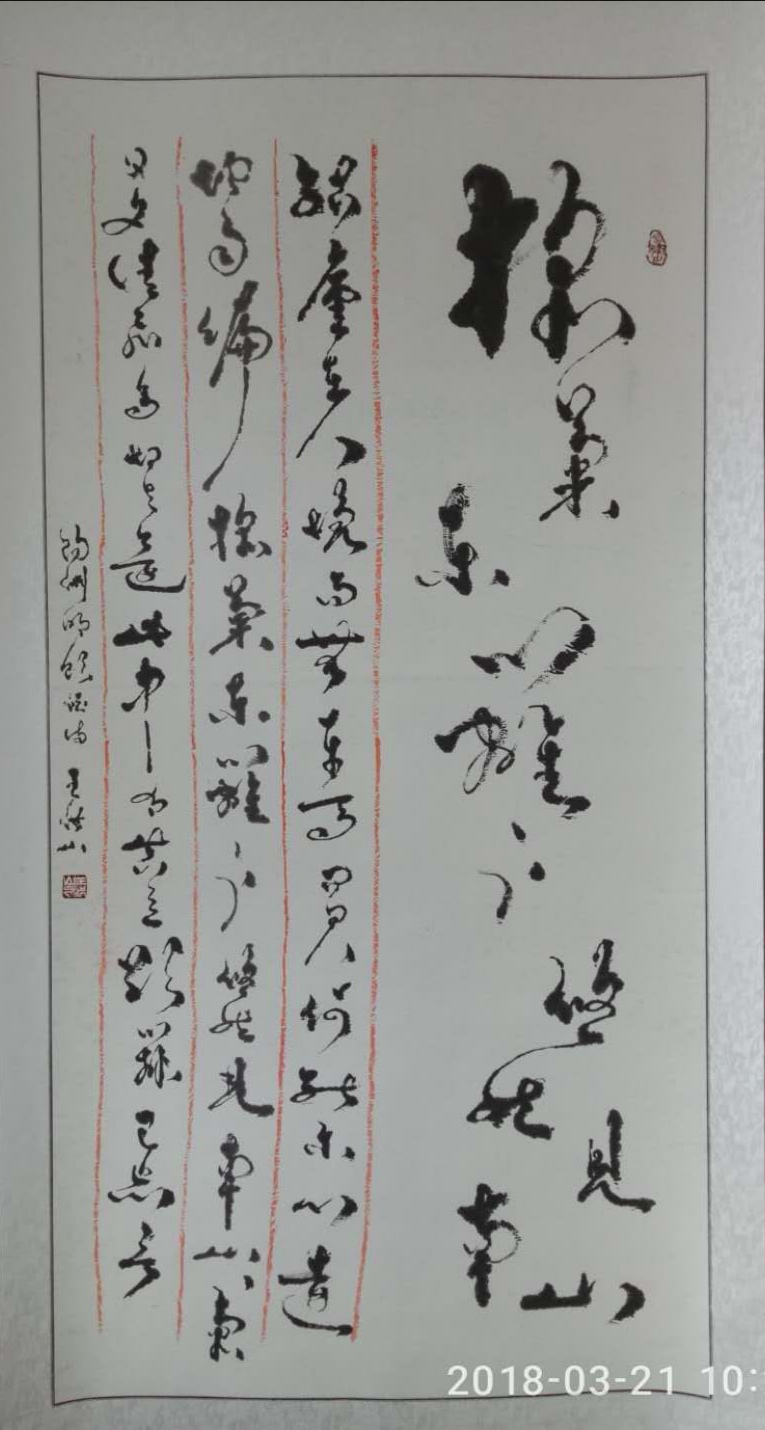 採菊
東籬下
悠然見
南山
結廬在人境而無車馬何能尔心遠
地自偏採菊東籬下悠然見南山々氣
日夕佳飛鳥相与還此中有真意欲辯已忘言
陶淵明飲酒詩 王
2018-03-21 10: